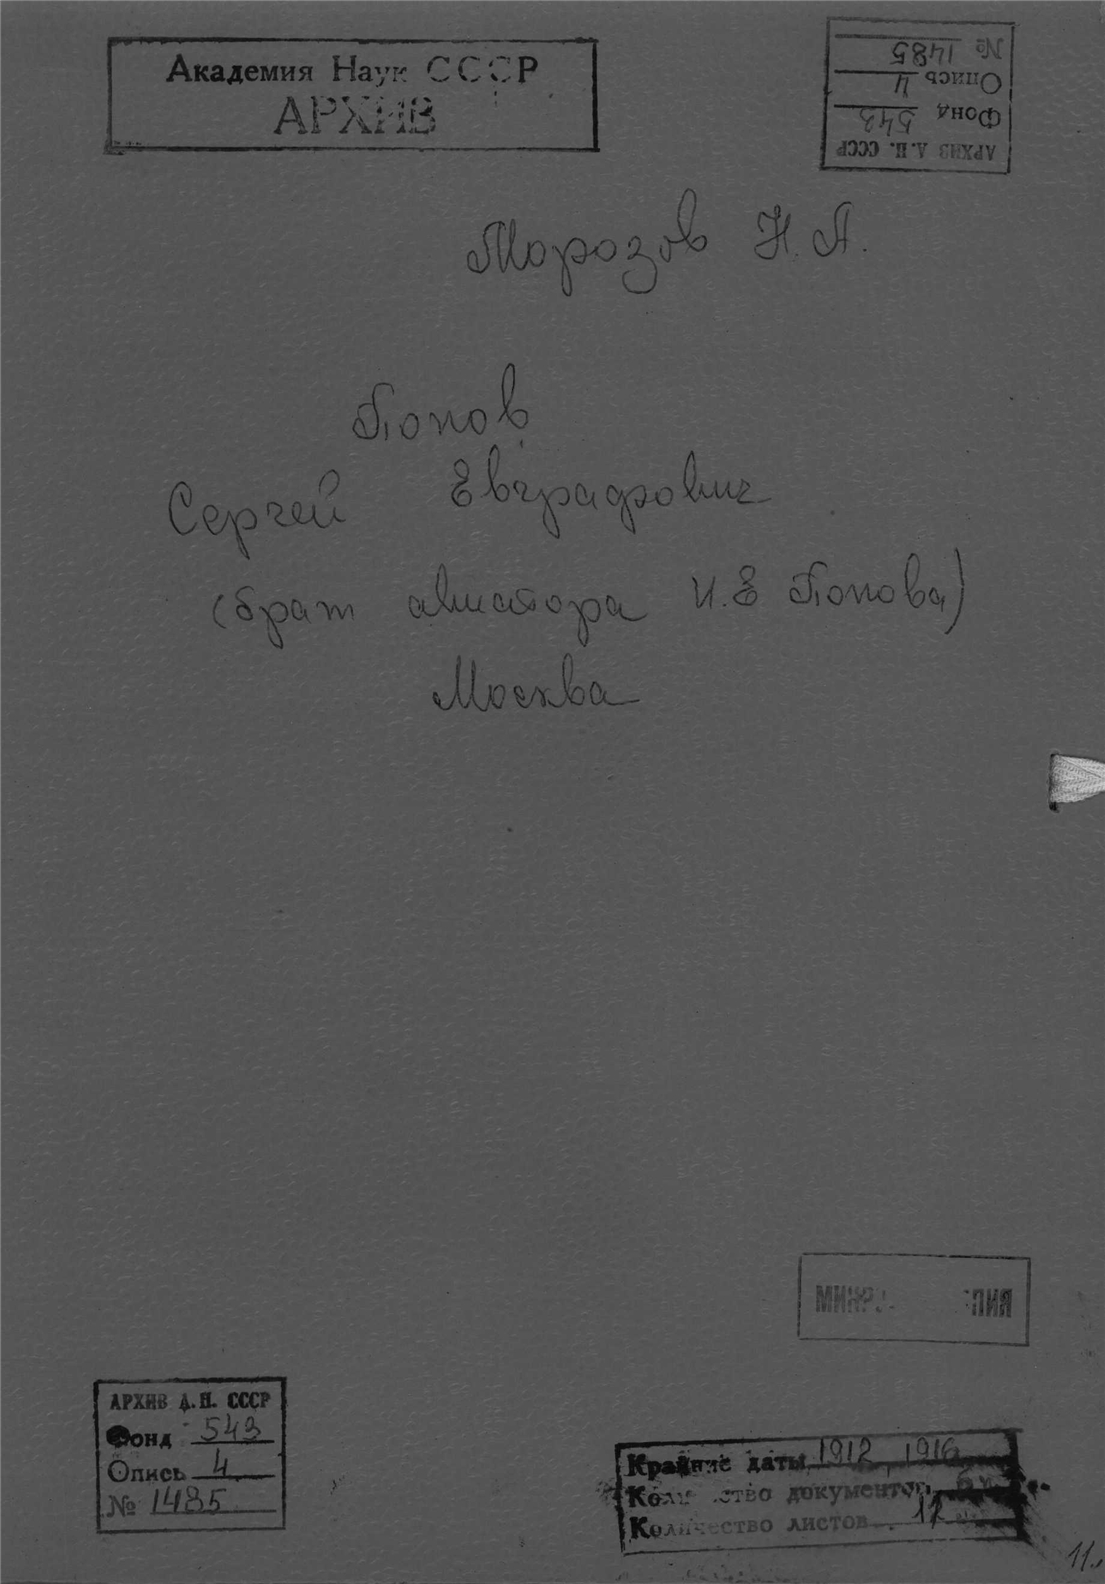 Академия Наук СССР
АРХИВ
АРХИВ А.Н. СССР
Фонд 543
Опись 4
№ 1485
Морозов Н.А.
Попов
Сергей Евграфович
(брат авиатора Н.Е Попова)
Москва
АРХИВ А.Н. СССР
Фонд 543
Опись 4
№ 1485
Крайние даты 1912, 1916
Количество документов
Количество листов 17